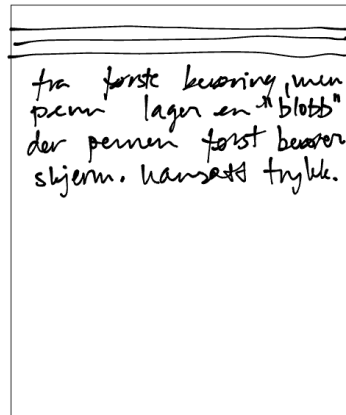 fra første berøring, men
penn lager en "blobb"
der pennen først berører
skjerm. Uansett trykk.